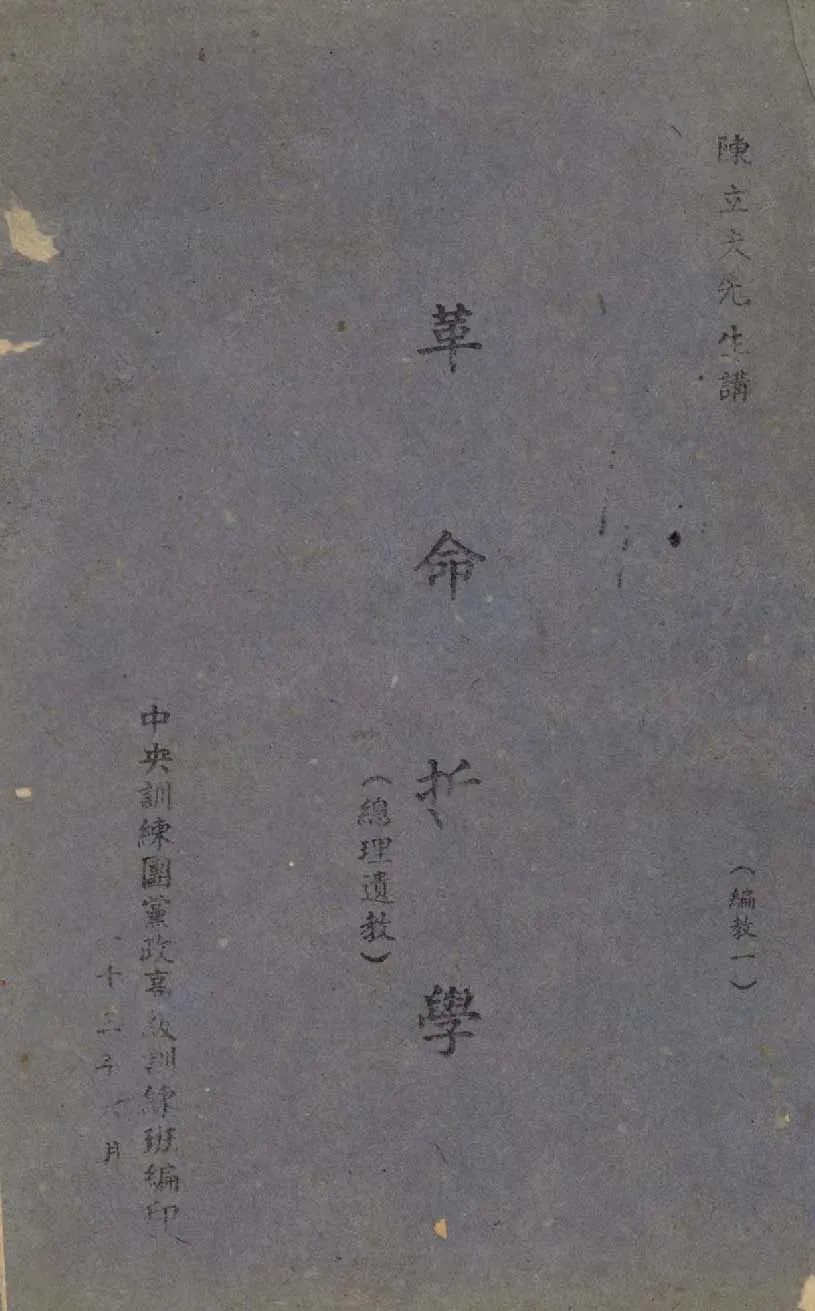 陳立夫先生講
（編教一）
革命哲學
（總理遺教）
中央訓練團黨政高級訓練班編印
十三年 月